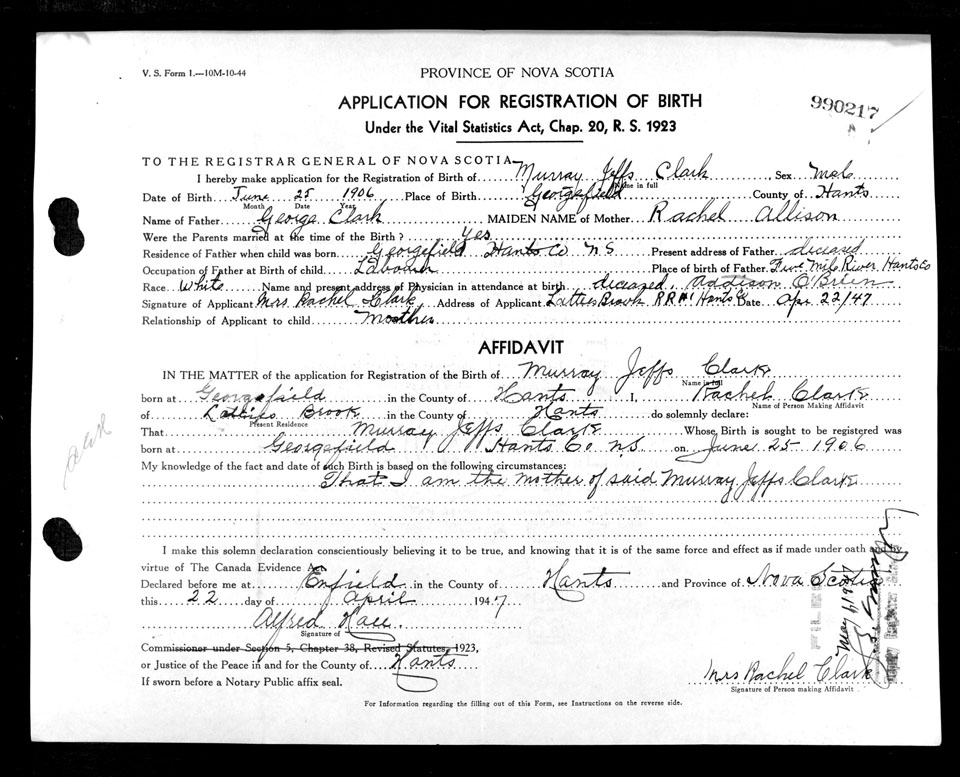 V. S. Form 1.—10M-10-44
PROVINCE OF NOVA SCOTIA
990217
APPLICATION FOR REGISTRATION OF BIRTH
Under the Vital Statistics Act, Chap. 20, R. S. 1923
TO THE REGISTRAR GENERAL OF NOVA SCOTIA
I hereby make application for the Registration of Birth of Murray Jeffs Clark, Sex Male
Name in full
Date of Birth June 25 1906 Place of Birth Georgefield County of Hants
Month Date Year
Name of Father George Clark MAIDEN NAME of Mother Rachel Allison
Were the Parents married at the time of the Birth? Yes
Residence of Father when child was born Georgefield Hants Co N S Present address of Father deceased
Occupation of Father at Birth of child Labourer Place of birth of Father Five Mile River Hants Co
Race White Name and present address of Physician in attendance at birth deceased, Addison O'Brien
Signature of Applicant Mrs Rachel Clark, Address of Applicant Latties Brook R R #1 Hants Co Date Apr 22/47
Relationship of Applicant to child Mother
AFFIDAVIT
IN THE MATTER of the application for Registration of the Birth of Murray Jeffs Clark
Name in full
born at Georgefield in the County of Hants I, Rachel Clark
Name of Person Making Affidavit
of Latties Brook in the County of Hants do solemnly declare:
Present Residence
That Murray Jeffs Clark Whose Birth is sought to be registered was
born at Georgefield Hants Co N.S. on June 25 1906
My knowledge of the fact and date of such Birth is based on the following circumstances:
That I am the mother of said Murray Jeffs Clark
I make this solemn declaration conscientiously believing it to be true, and knowing that it is of the same force and effect as if made under oath and by
virtue of The Canada Evidence Act.
Declared before me at Enfield in the County of Hants and Province of Nova Scotia
this 22 day of April 1947
Alfred
Signature of
Commissioner under Section 5, Chapter 38, Revised Statutes, 1923,
or Justice of the Peace in and for the County of Hants
If sworn before a Notary Public affix seal.
FILED
May 6/1947
Mrs Rachel Clark
Signature of Person making Affidavit
For Information regarding the filling out of this Form, see Instructions on the reverse side.